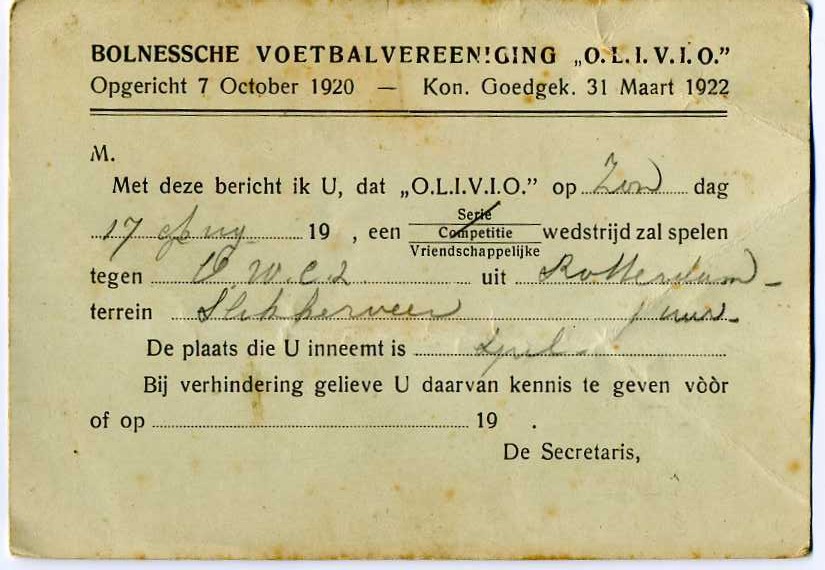 BOLNESSCHE VOETBALVEREENIGING „O.L.I.V.I.O.”
Opgericht 7 October 1920 — Kon. Goedgek. 31 Maart 1922
M.
Met deze bericht ik U, dat „O.L.I.V.I.O.” op Zon dag
17 19 , een Serie Competitie Vriendschappelijke wedstrijd zal spelen
tegen uit Rotterdam
terrein Slikkerveer 1 uur
De plaats die U inneemt is
Bij verhindering gelieve U daarvan kennis te geven vòòr
of op 19 .
De Secretaris,